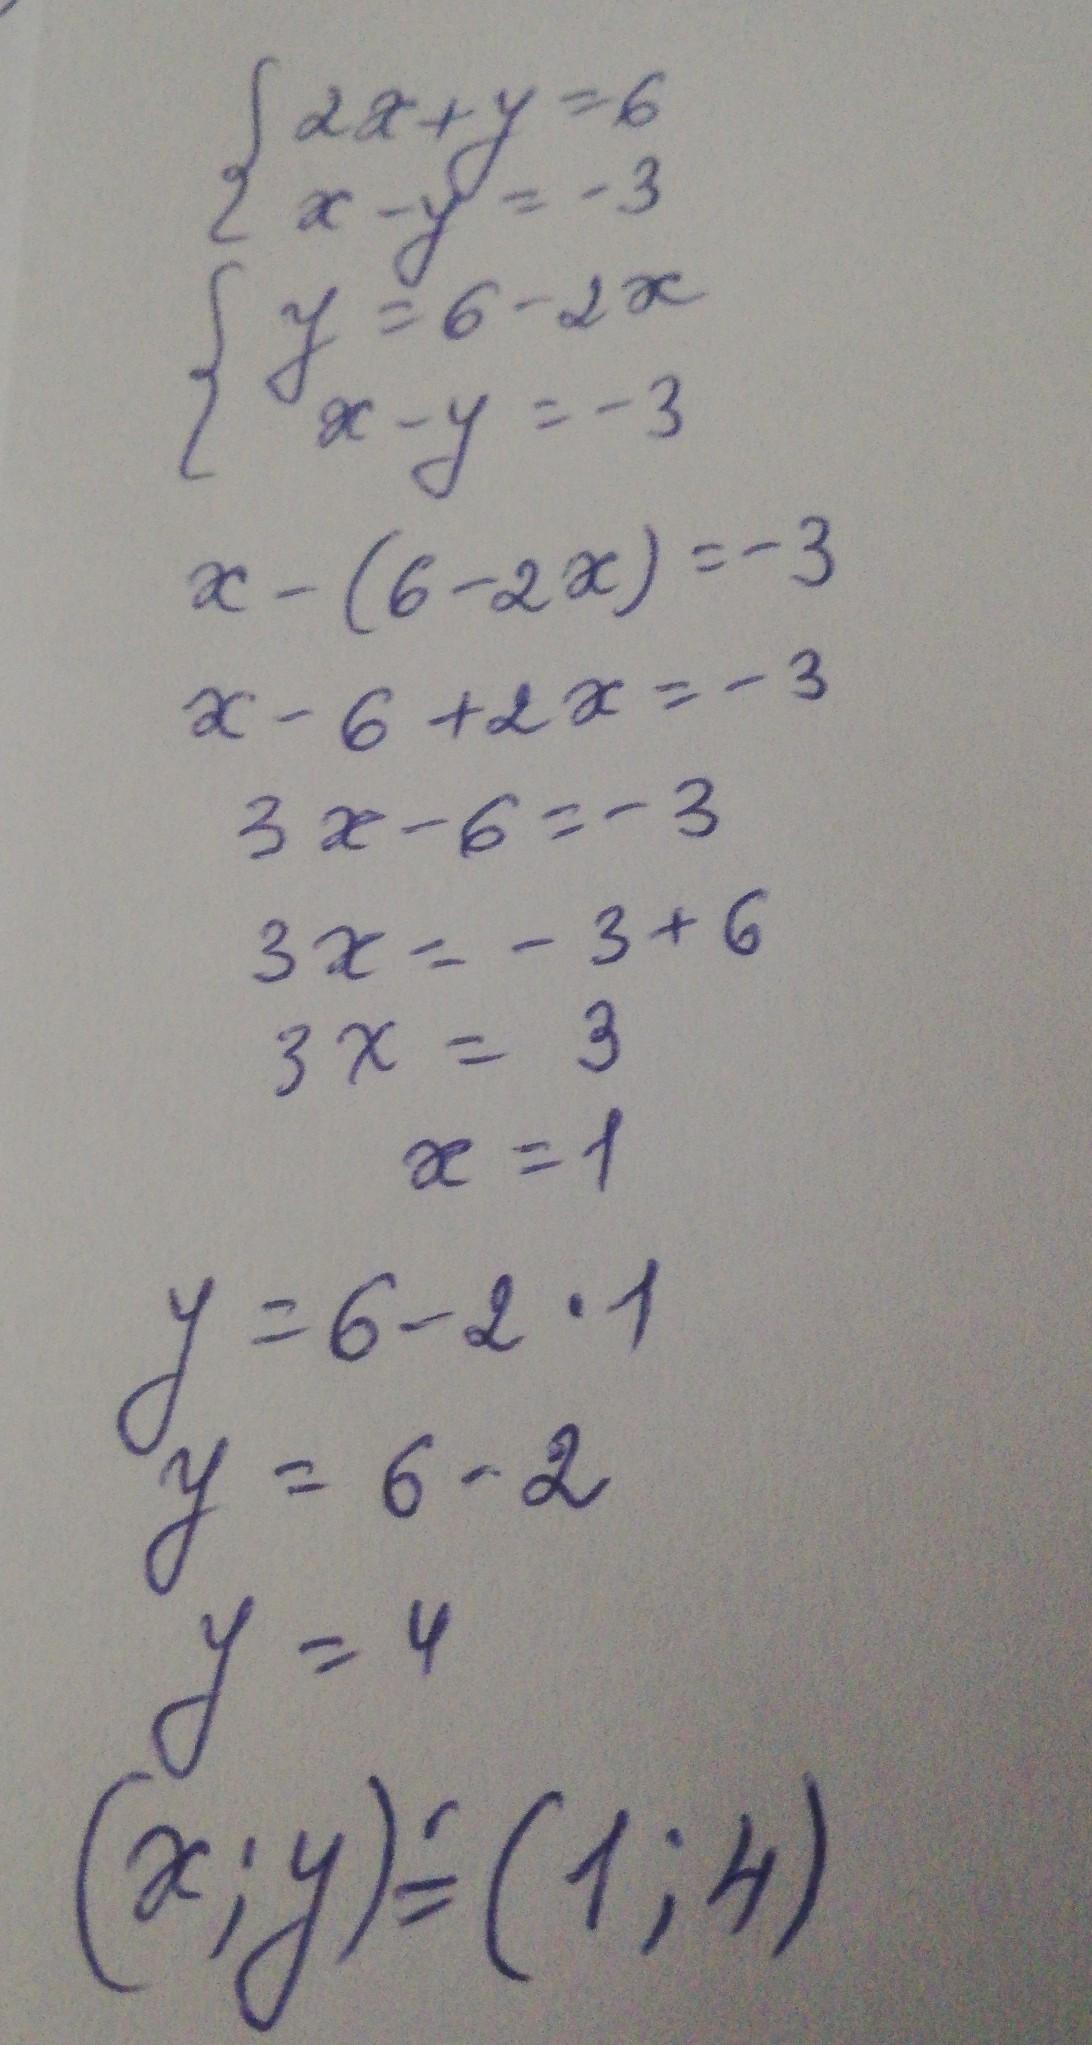 { 2x+y=6
x-y=-3
{ y=6-2x
x-y=-3
x-(6-2x)=-3
x-6+2x=-3
3x-6=-3
3x=-3+6
3x=3
x=1
y=6-2·1
y=6-2
y=4
(x;y)=(1;4)